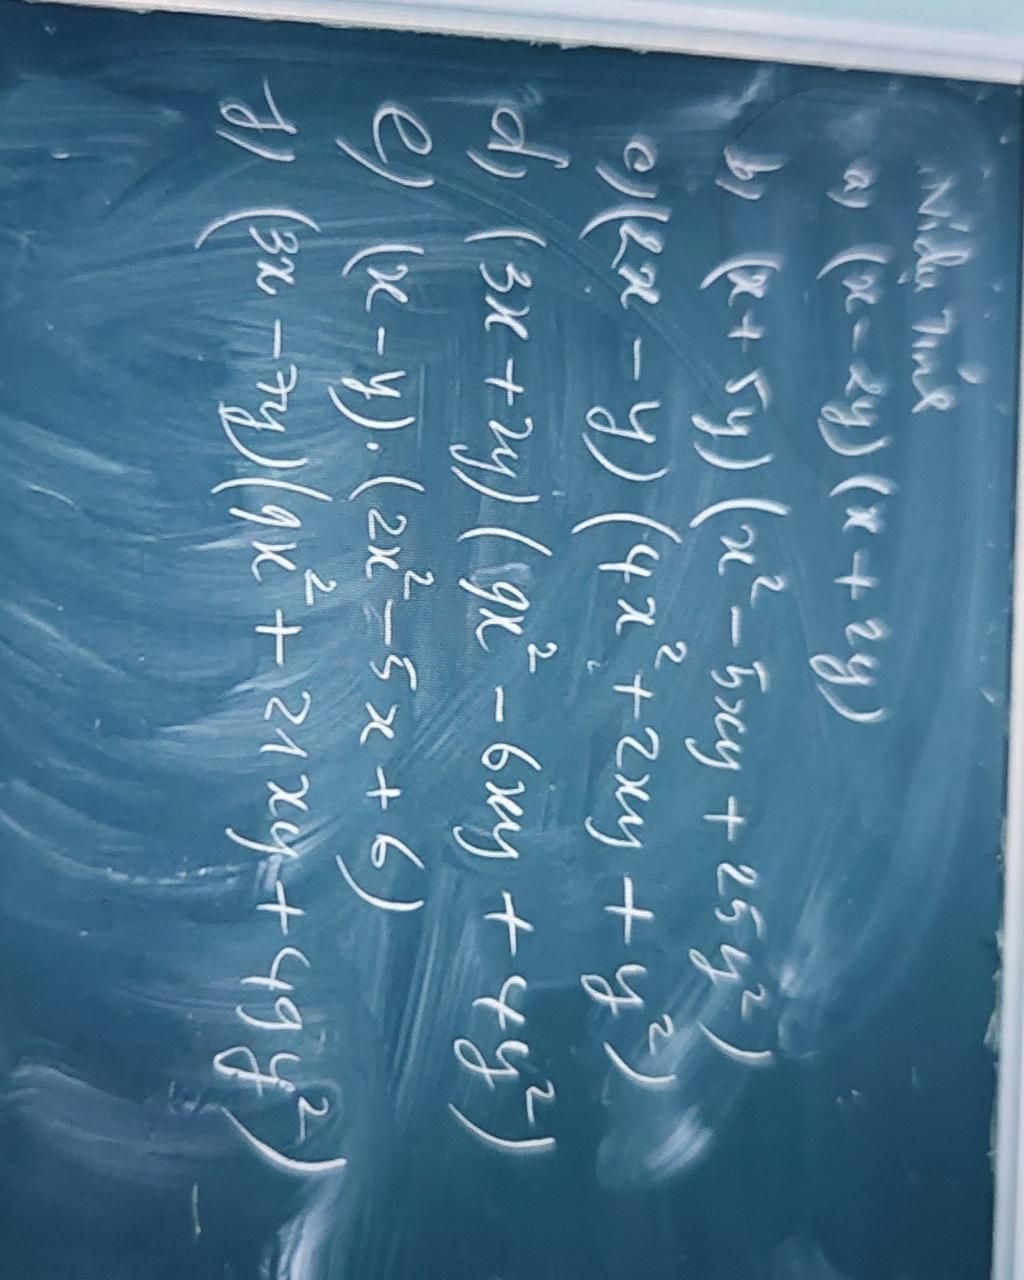 Ví dụ Tính
a) (x - 2y)(x + 2y)
b) (x + 5y)(x² - 5xy + 25y²)
c) (2x - y)(4x² + 2xy + y²)
d) (3x + 2y)(9x² - 6xy + 4y²)
e) (x - y).(2x² - 5x + 6)
g) (3x - 7y)(9x² + 21xy + 49y²)